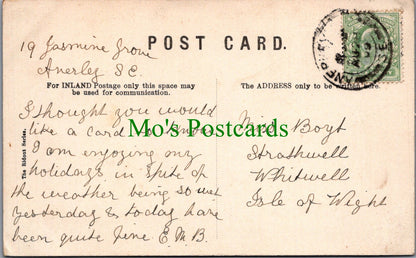 19 Jasmine Grove
Anerley S.E.
POST CARD.
For INLAND Postage only this space may
be used for communication.
The ADDRESS only to be
I thought you would
like a card to know
I am enjoying my
holidays in spite of
the weather being so wet
yesterday & today have
been quite fine E.M.B.
The Rident Series.
Mo's Postcards
Miss Boyt
Strathwell
Whitwell
Isle of Wight